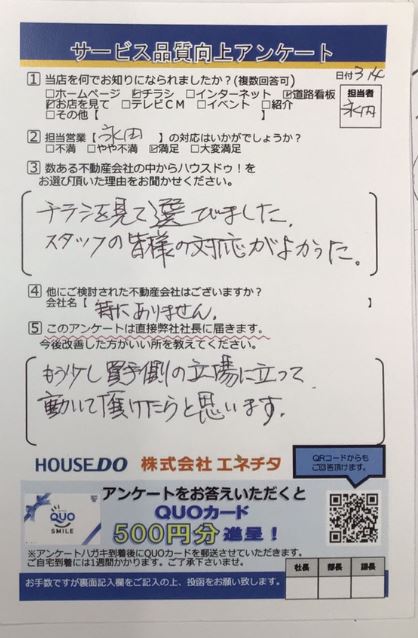 サービス品質向上アンケート
1 当店を何でお知りになられましたか?(複数回答可)
日付 3/4
□ホームページ ☑チラシ □インターネット ☑道路看板
☑お店を見て □テレビCM □イベント □紹介
□その他【 】
担当者
永田
2 担当営業【永田 】の対応はいかがでしょうか?
□不満 □やや不満 ☑満足 □大変満足
3 数ある不動産会社の中からハウスドゥ!を
お選び頂いた理由をお聞かせください。
チラシを見て選びました。
スタッフの皆様の対応がよかった。
4 他にご検討された不動産会社はございますか?
会社名【 特にありません。 】
5 このアンケートは直接弊社社長に届きます。
今後改善した方がいい所を教えてください。
もう少し買手側の立場に立って
動いて頂けたらと思います。
HOUSEDO 株式会社 エネチタ
QRコードからも
ご回答頂けます。
QUO
SMILE
アンケートをお答えいただくと
QUOカード
500円分 進呈!
※アンケートハガキ到着後にQUOカードを郵送させていただきます。
ご自宅到着には1週間かかります。ご了承下さいませ。
お手数ですが裏面記入欄をご記入の上、投函をお願い致します。
社長 部長 課長